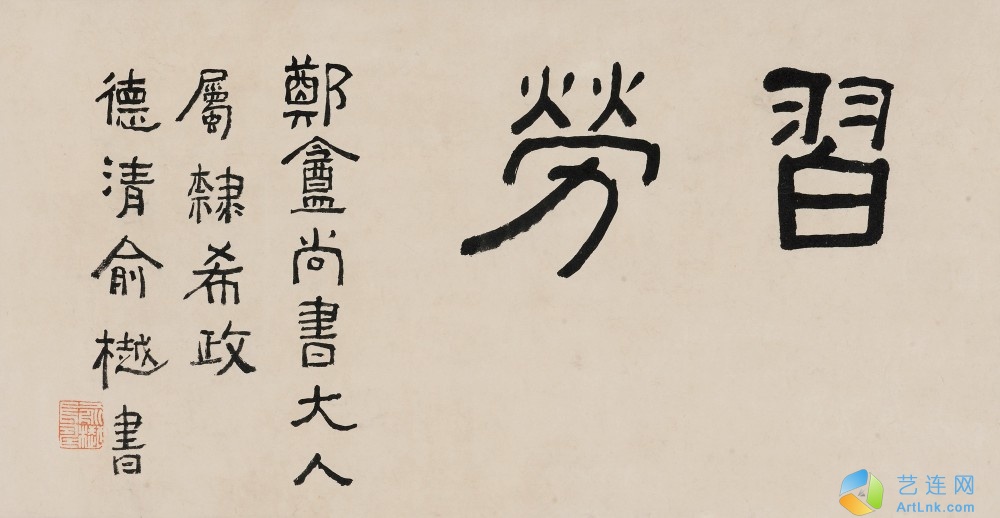 習勞
鄭盦尚書大人
屬隸希政
德清俞樾書
艺连网
ArtLnk.com